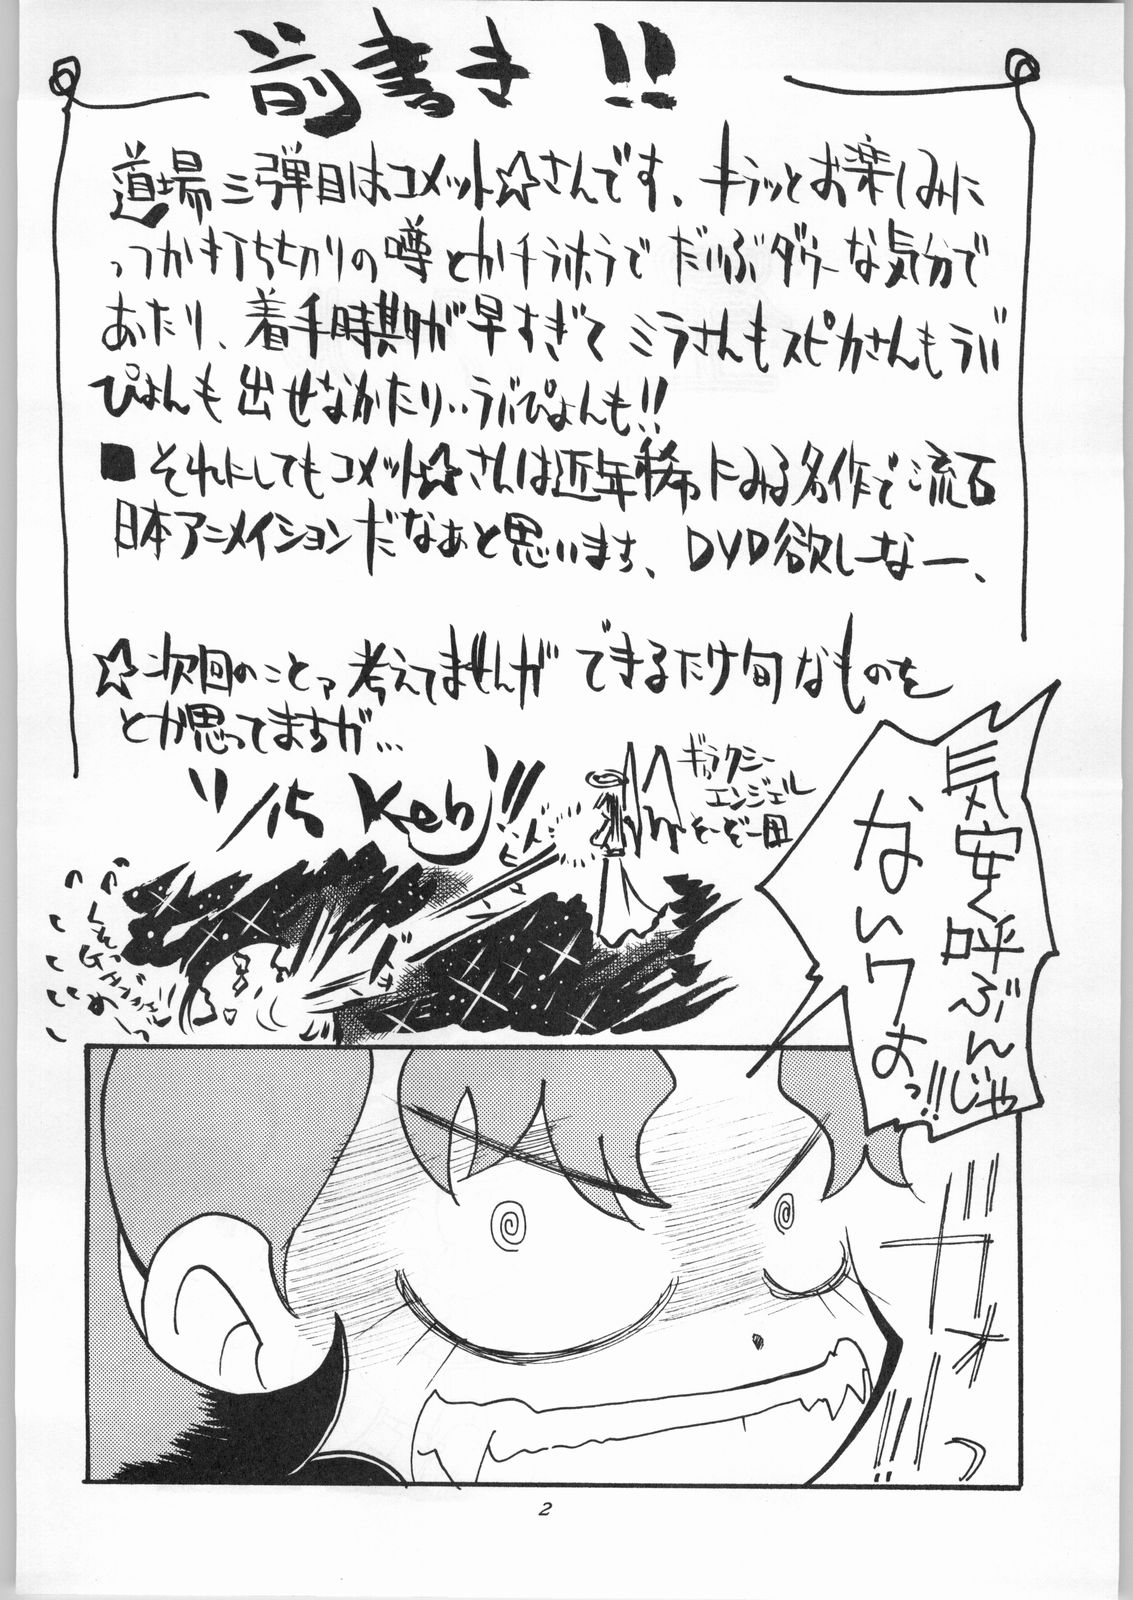 前書き!!
道場三弾目はコメット☆さんです、キラッとお楽しみに
っつか打ち切りの噂とかチラホラでだいぶダウナーな気分で
あったり、着手時期が早すぎてミラさんもスピカさんもラバ
ぴょんも出せなかったり‥ラバぴょんも!!
■それにしてもコメット☆さんは近年稀にみる名作で流石
日本アニメイションだなぁと思います、DVD欲しーなー、
☆次回のことァ考えてませんができるだけ旬なものを
とか思ってますが…
11/15 Keb
ギャラクシー
エンジェル
そーぞー図
気安く呼ぶんじゃ
ないワよっ!!
カォーっ!!
2